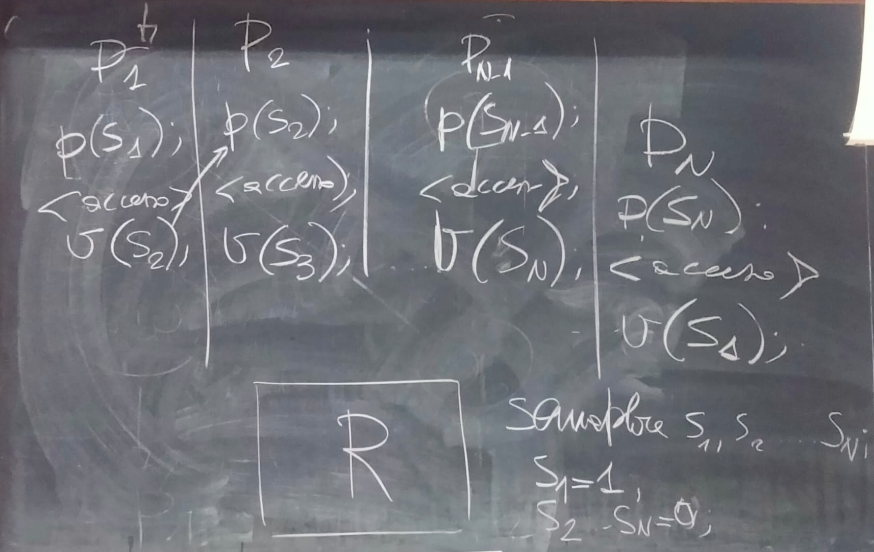 P1
p(S1);
<accesso>
v(S2);
P2
p(S2);
<accesso>;
v(S3);
PN-1
p(SN-1);
<accesso>;
v(SN);
PN
p(SN);
<accesso>
v(S1);
R
semaphore S1, S2 ... SN;
S1=1,
S2 .. SN=0;